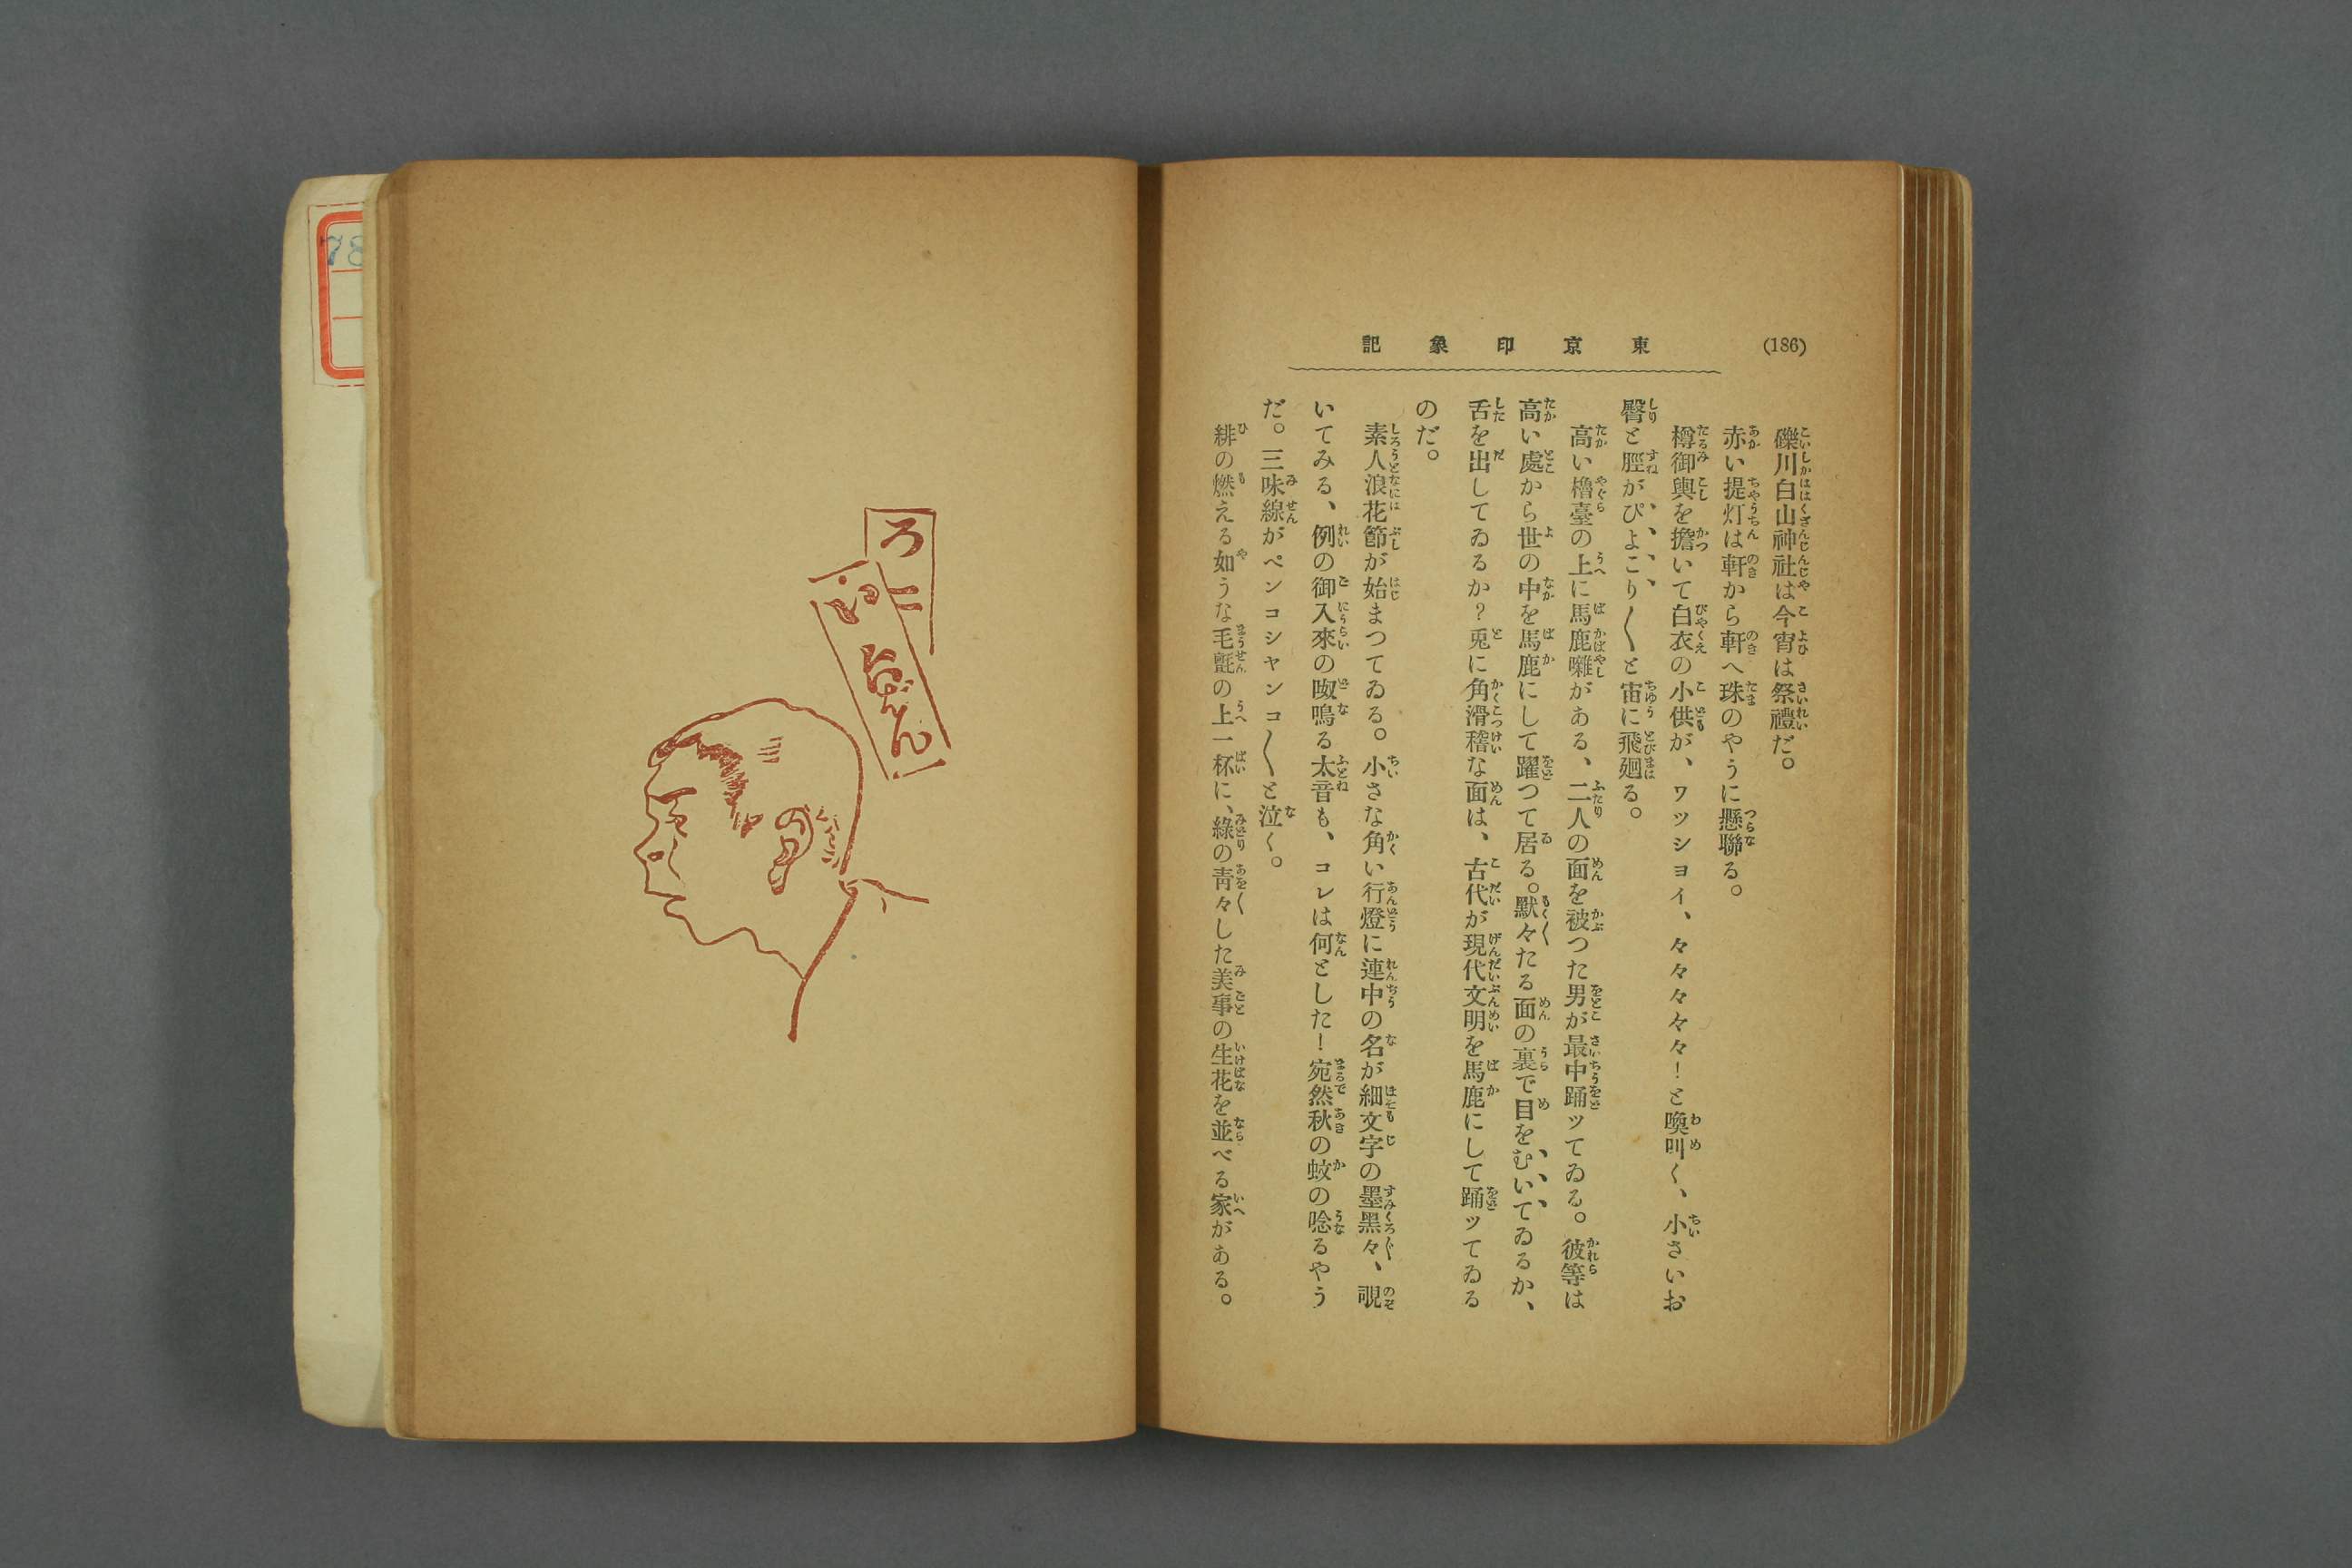 (186)
東京印象記
礫川白山神社は今宵は祭禮だ。
赤い提灯は軒から軒へ珠のやうに懸聯る。
樽御輿を擔いて白衣の小供が、ワッショイ、々々々々々！と喚叫く、小さいお
臀と脛がぴよこり〱と宙に飛廻る。
高い櫓臺の上に馬鹿囃がある、二人の面を被つた男が最中踊ッてゐる。彼等は
高い處から世の中を馬鹿にして躍つて居る。默々たる面の裏で目をむいてゐるか、
舌を出してゐるか？兎に角滑稽な面は、古代が現代文明を馬鹿にして踊ッてゐる
のだ。
素人浪花節が始まつてゐる。小さな角い行燈に連中の名が細文字の墨黑々、覗
いてみる、例の御入來の呶鳴る太音も、コレは何とした！宛然秋の蚊の唸るやう
だ。三味線がペンコシヤンコ〱と泣く。
緋の燃える如うな毛氈の上一杯に、綠の靑々した美事の生花を並べる家がある。
78